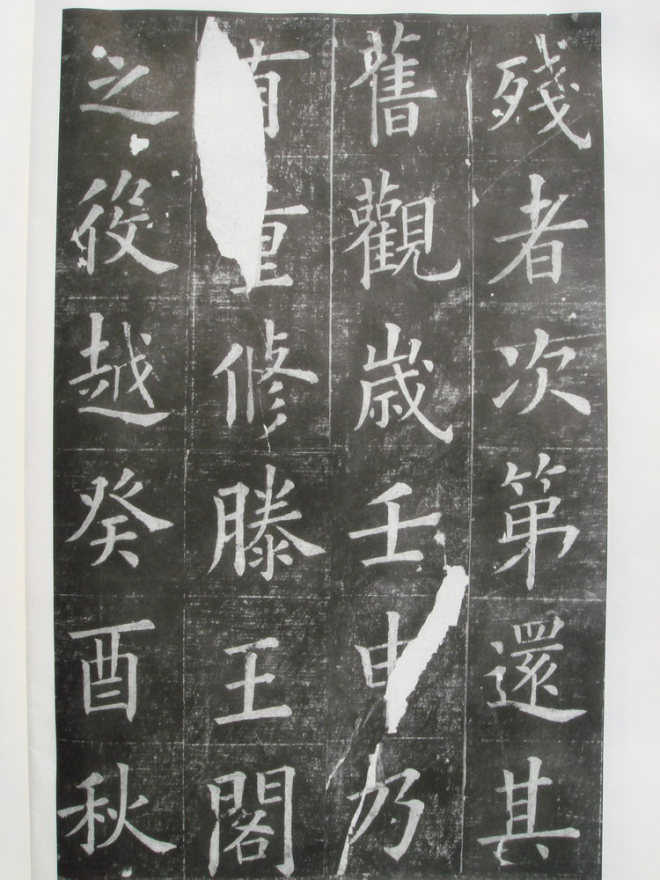 殘者次第還其
舊觀歲壬申乃
有重修滕王閣
之後越癸酉秋